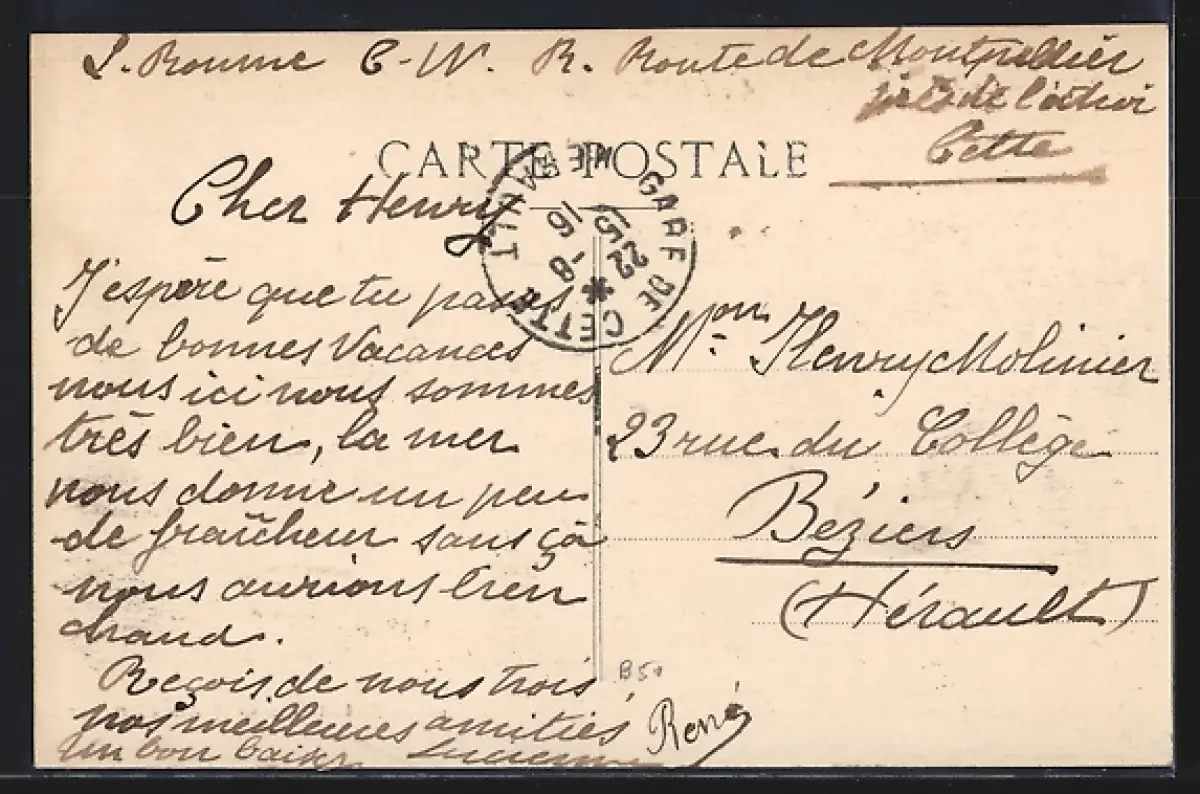 L. Roume C-W. R. Route de Montpellier
près de l'octroi
Cette
CARTE POSTALE
GARE DE CETTE * HERAULT
22 15
8 - 8
16
Cher Henry
J'espère que tu passes
de bonnes Vacances
nous ici nous sommes
très bien, la mer
nous donne un peu
de fraîcheur sans ça
nous aurions bien
chaud.
Reçois de nous trois
nos meilleures amitiés
un bon baiser Lucienne
René
Mon Henry Molinier
23 rue du Collège
Béziers
(Hérault)
B50